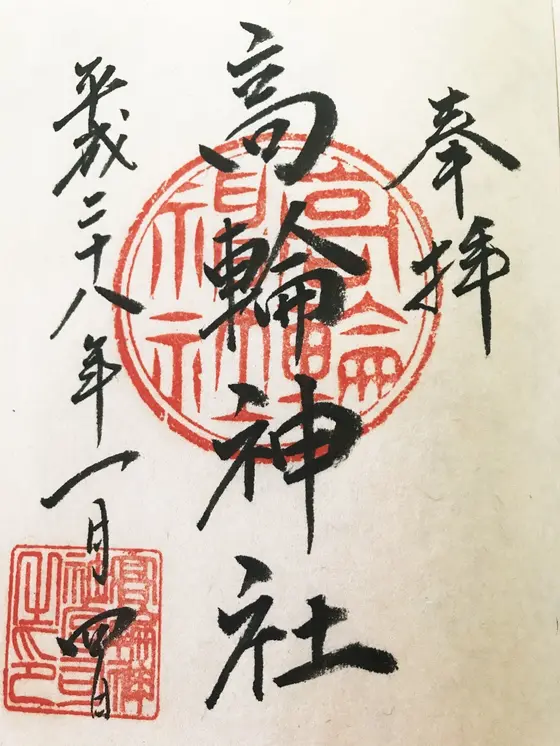 奉拝
高輪神社
平成二十八年一月四日
高輪神社